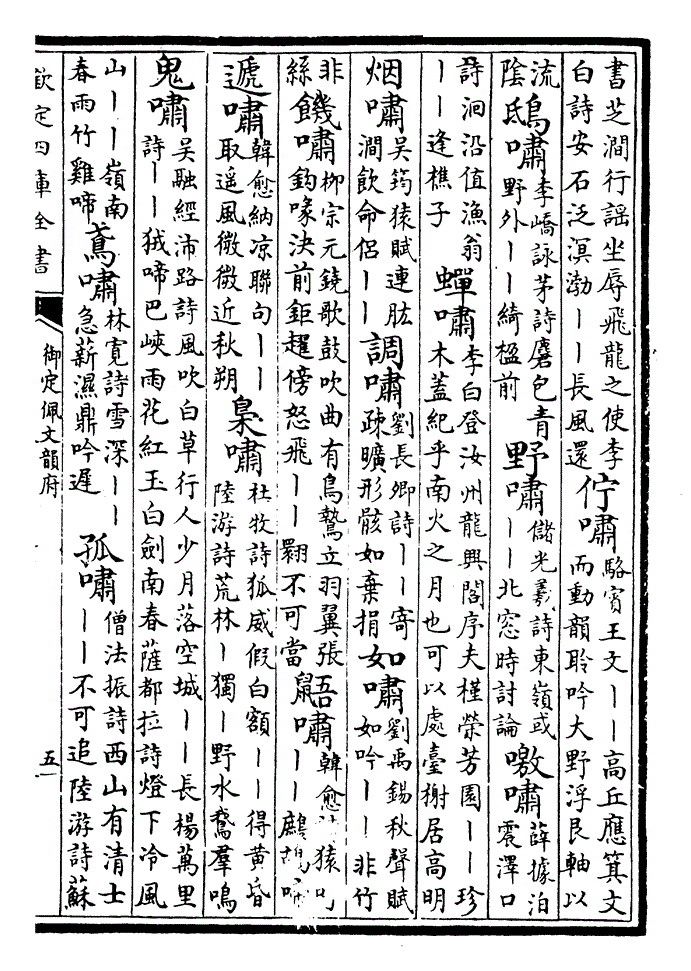 書芝澗行謡坐辱飛龍之使李白詩安石泛溟渤丨丨長風還 佇嘯 駱賓王文丨丨高丘應箕文而動韻聆吟大野浮艮軸以
流陰 鴟嘯 李嶠詠茅詩麏包青野外丨丨綺楹前 野嘯 儲光羲詩東嶺或丨丨北窓時討論 噭嘯 薛據泊震澤口
詩洄沿值漁翁丨丨逢樵子 蟬嘯 李白登汝州龍興閣序夫槿榮芳園丨丨珍木蓋紀乎南火之月也可以處臺榭居高明
烟嘯 吴筠猿賦連肱澗飲命侶丨丨 調嘯 劉長卿詩丨丨寄疎曠形骸如棄捐 如嘯 劉禹錫秋聲賦如吟丨丨非竹
非絲 饑嘯 柳宗元鐃歌鼓吹曲有鳥鷙立羽翼張鈎喙決前鉅趯傍怒飛丨丨翾不可當 鼯嘯 韓愈詩猿叫丨丨鷓鴣啼
遞嘯 韓愈納凉聯句丨丨取遥風微微近秋朔 梟嘯 杜牧詩狐威假白額丨丨得黄昏陸游詩荒林丨獨丨野水鵞羣鳴
鬼嘯 吴融經沛路詩風吹白草行人少月落空城丨丨長楊萬里詩丨丨狨啼巴峽雨花紅玉白劍南春薩都拉詩燈下冷風
山丨丨嶺南春雨竹雞啼 鳶嘯 林寛詩雪深丨丨急薪濕鼎吟遲 孤嘯 僧法振詩西山有清士丨丨不可追陸游詩蘇
欽定四庫全書
御定佩文韻府
五